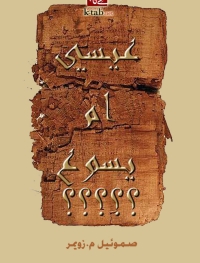 k-tab
عيسى
أم
يسوع
؟؟؟؟؟
صموئيل م. زويمر